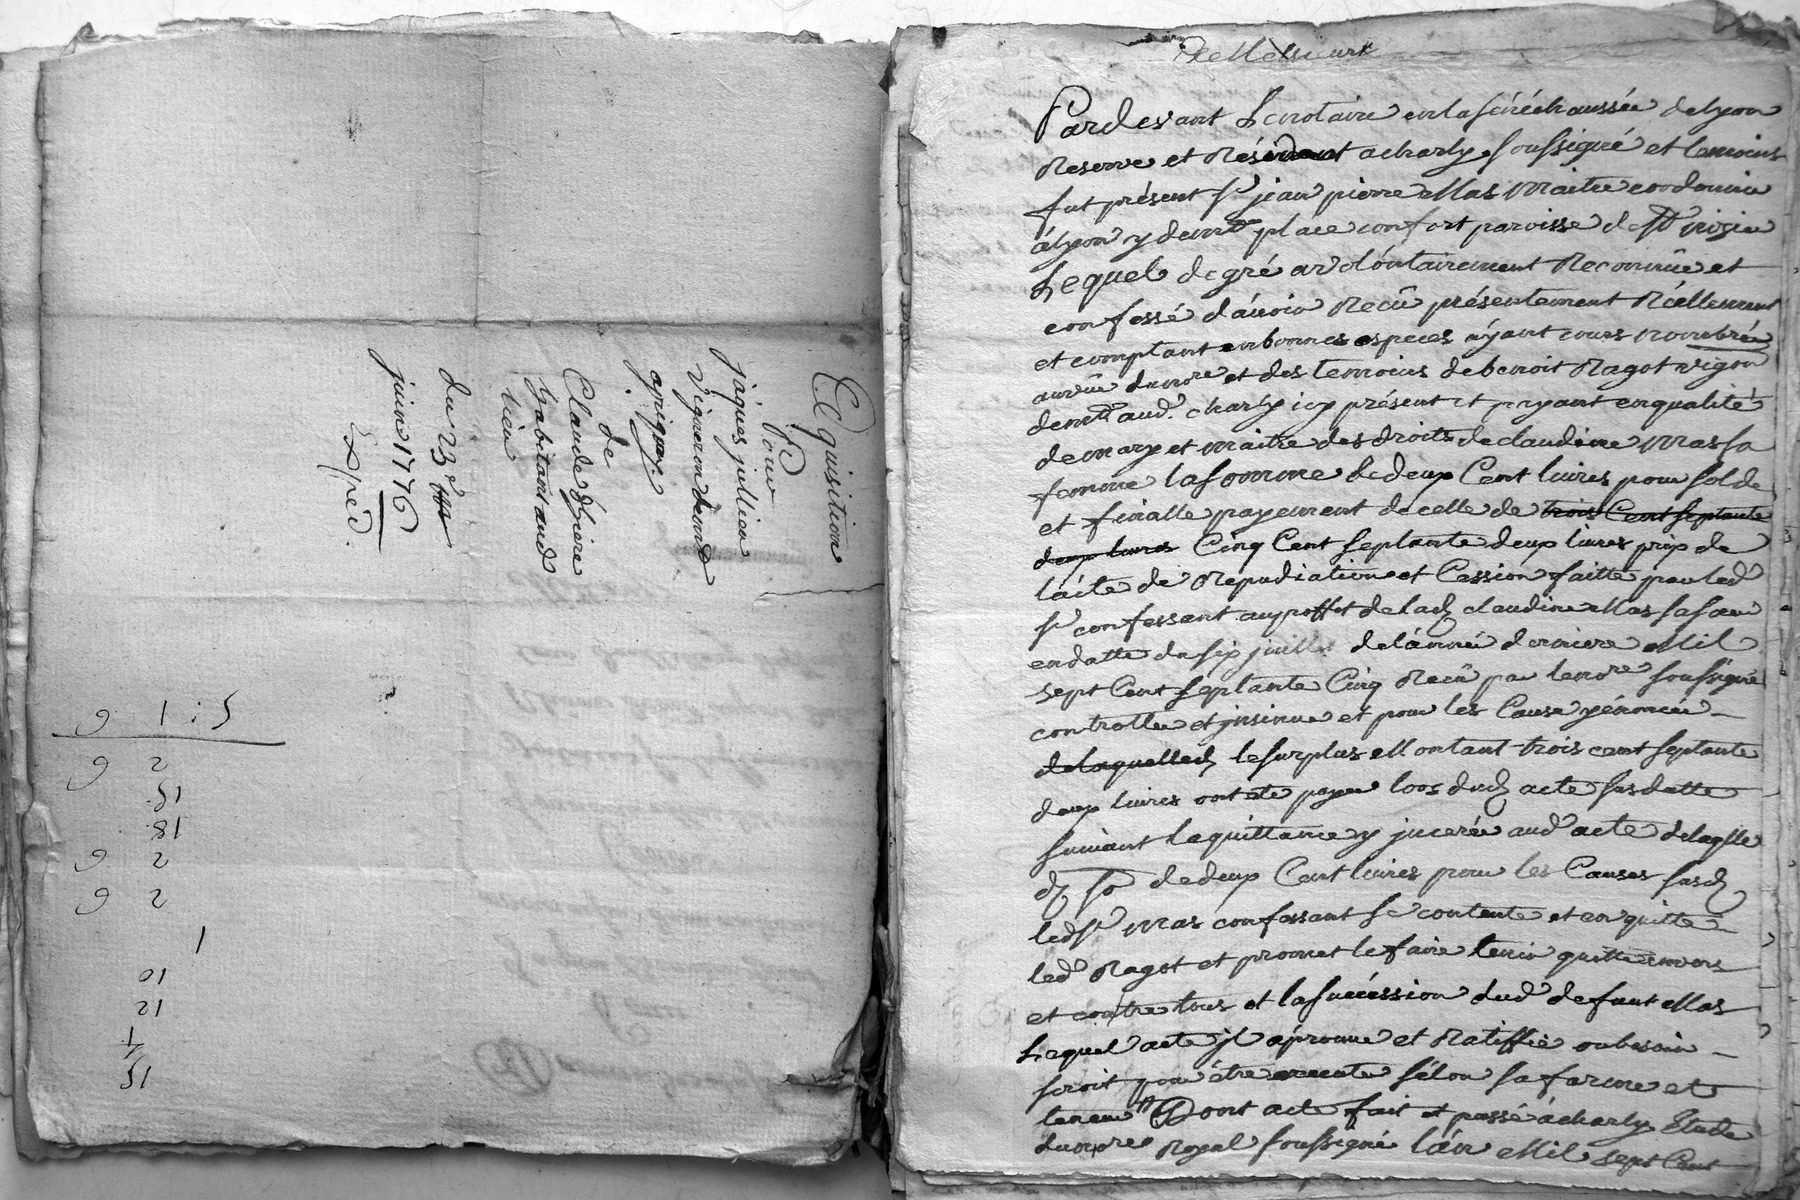 Equisition
Pour
jaques jullien
Vigneron demt
a
de
Claude
habitant aud
lieu
du 23e
juin 1776
Exped.
5 : 1 6
2 6
15
18
2 6
2 6
1
10
12
15
Pardevant Le notaire en la sénéchaussée de lyon
Reservé et Résident a charly soussigné et temoins
fut présent Sr jean pierre Mas Maitre cordonnier
à lyon y demt place confort paroisse de St nizier
Lequel de gré a volontairement Reconnû et
confessé d'avoir Recû présentement Réellement
et comptant en bonnes especes ayant cours nombrée
au vûe du nore et des temoins de benoit Ragot vigon
demt aud. charly icy présent et payant en qualité
de mary et maitre des droits de claudine Mas sa
femme la somme de deux Cent livres pour solde
et finalle payement de celle de trois Cent septante
deux livres Cinq Cent septante deux livres prix de
l'acte de Repudiation et Cession faitte par led
Sr confessant au proffit de lad claudine Mas sa sœur
en datte du six juillet de l'année derniere Mil
sept Cent septante Cinq Recû par le nore soussigné
controllé et insinué et pour les Causes y énoncée
de laquelled le surplus Montant trois cent septante
deux livres ont été payée lors dud acte susdatte
suivant la quittance y inserée aud acte de laqlle
de deux Cent livres pour les Causes susd
led Sr Mas confessant se contente et en quitte
led Ragot et promet le faire tenir quitte envers
et contre tous et la succéssion dud defunt Mas
Lequel acte il aprouve et Ratiffie au besoin
seroit pour être executé sélon sa forme et
teneur Dont acte fait et passé à charly Etude
du nore Royal soussigné l'an Mil sept Cent